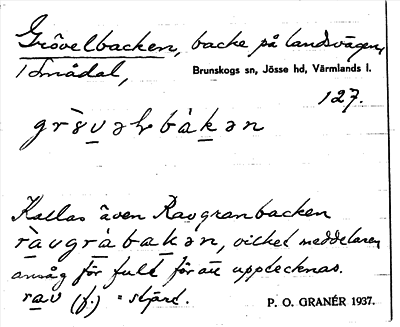 Grövelbacken, backe på landsvägen,
i Smådal,
Brunskogs sn, Jösse hd, Värmlands l.
127.
grö̀vəɫbàkən
Kallas även Ravgranbacken
ràvgràbakən, vilket meddelaren
ansåg för fult för att upptecknas.
rav (f.) = stjärt.
P. O. GRANÉR 1937.